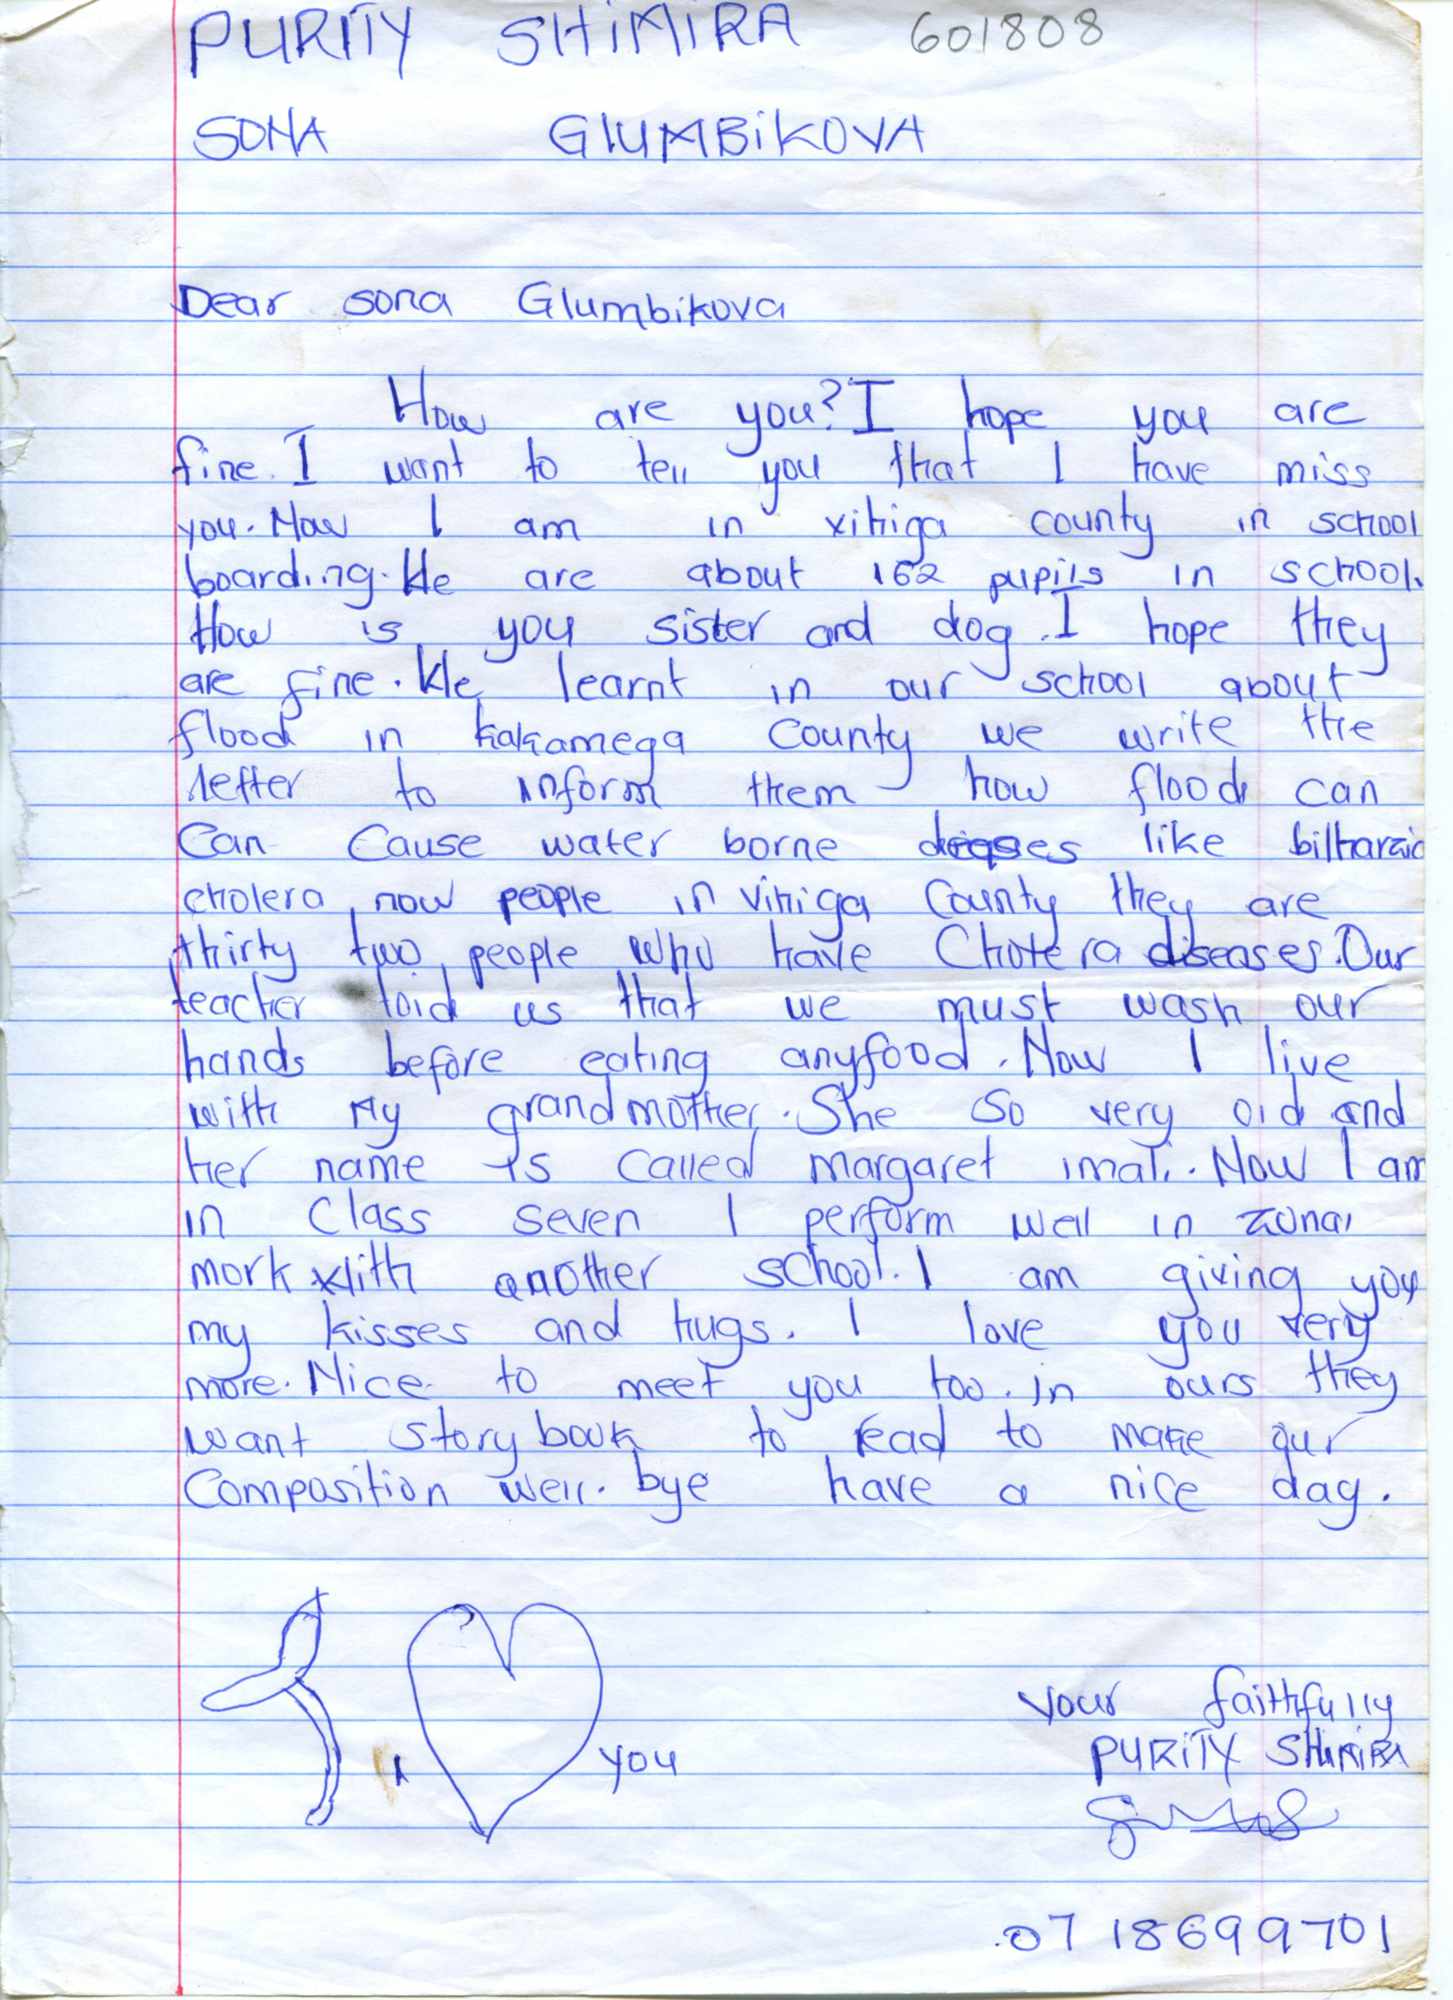 PURITY SHIMIRA 601808
SONA GLUMBIKOVA
Dear sona Glumbikova
How are you? I hope you are
fine. I want to tell you that I have miss
you. Now I am in vihiga county in school
boarding. We are about 162 pupils in school.
How is you sister and dog. I hope they
are fine. We learnt in our school about
flood in kakamega county we write the
letter to inform them how flood can
Can Cause water borne like bilharzia
cholera, now people in vihiga County they are
thirty two people who have Cholera diseases. Our
teacher told us that we must wash our
hands before eating anyfood. Now I live
with My grandmother. She so very old and
her name is called margaret imali. Now I am
in Class seven I perform well in zonal
mork with another school. I am giving you
my kisses and hugs. I love you very
more. Nice to meet you too. in ours they
want story book to read to make our
Composition well. bye have a nice day.
I you
your faithfully
PURITY SHIMIRA
0718699701